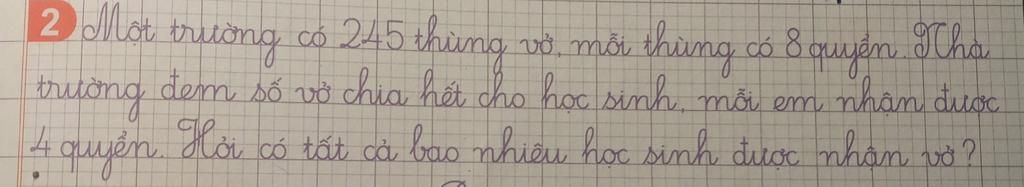 2 Một trường có 245 thùng vở, mỗi thùng có 8 quyển. Nhà
trường đem số vở chia hết cho học sinh, mỗi em nhận được
4 quyển. Hỏi có tất cả bao nhiêu học sinh được nhận vở?